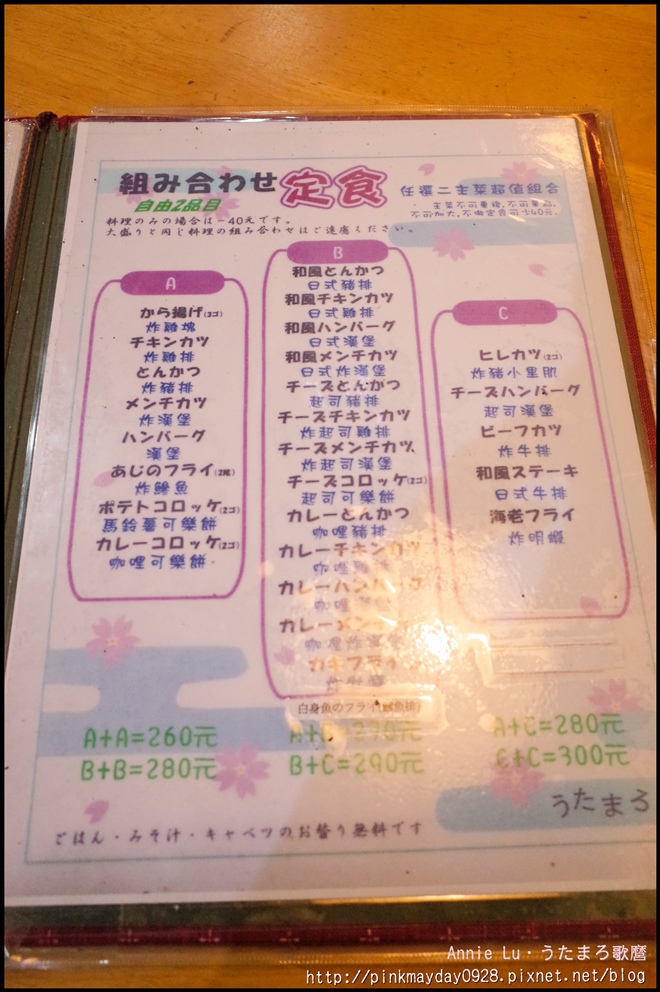 組み合わせ定食
自由2品目
任選二主菜超值組合
料理のみの場合は-40元です。
大盛りと同じ料理の組み合わせはご遠慮ください。
A
から揚げ(3コ)
炸雞塊
チキンカツ
炸雞排
とんかつ
炸豬排
メンチカツ
炸漢堡
ハンバーグ
漢堡
あじのフライ(2尾)
炸鰺魚
ポテトコロッケ(2コ)
馬鈴薯可樂餅
カレーコロッケ(2コ)
咖哩可樂餅
B
和風とんかつ
日式豬排
和風チキンカツ
日式雞排
和風ハンバーグ
日式漢堡
和風メンチカツ
日式炸漢堡
チーズとんかつ
起司豬排
チーズチキンカツ
炸起司雞排
チーズメンチカツ
炸起司漢堡
チーズコロッケ(2コ)
起司可樂餅
カレーとんかつ
咖哩豬排
カレーチキンカツ
咖哩
カレーハンバーグ
咖哩
カレーメンチ
咖哩炸漢堡
カキフライ
白身魚のフライ(鱈魚排)
C
ヒレカツ(2コ)
炸豬小里肌
チーズハンバーグ
起司漢堡
ビーフカツ
炸牛排
和風ステーキ
日式牛排
海老フライ
炸明蝦
A+A=260元
A+B=270元
A+C=280元
B+B=280元
B+C=290元
C+C=300元
うたまろ
ごはん・みそ汁・キャベツのお替り無料です
Annie Lu・うたまろ歌麿
http://pinkmayday0928.pixnet.net/blog